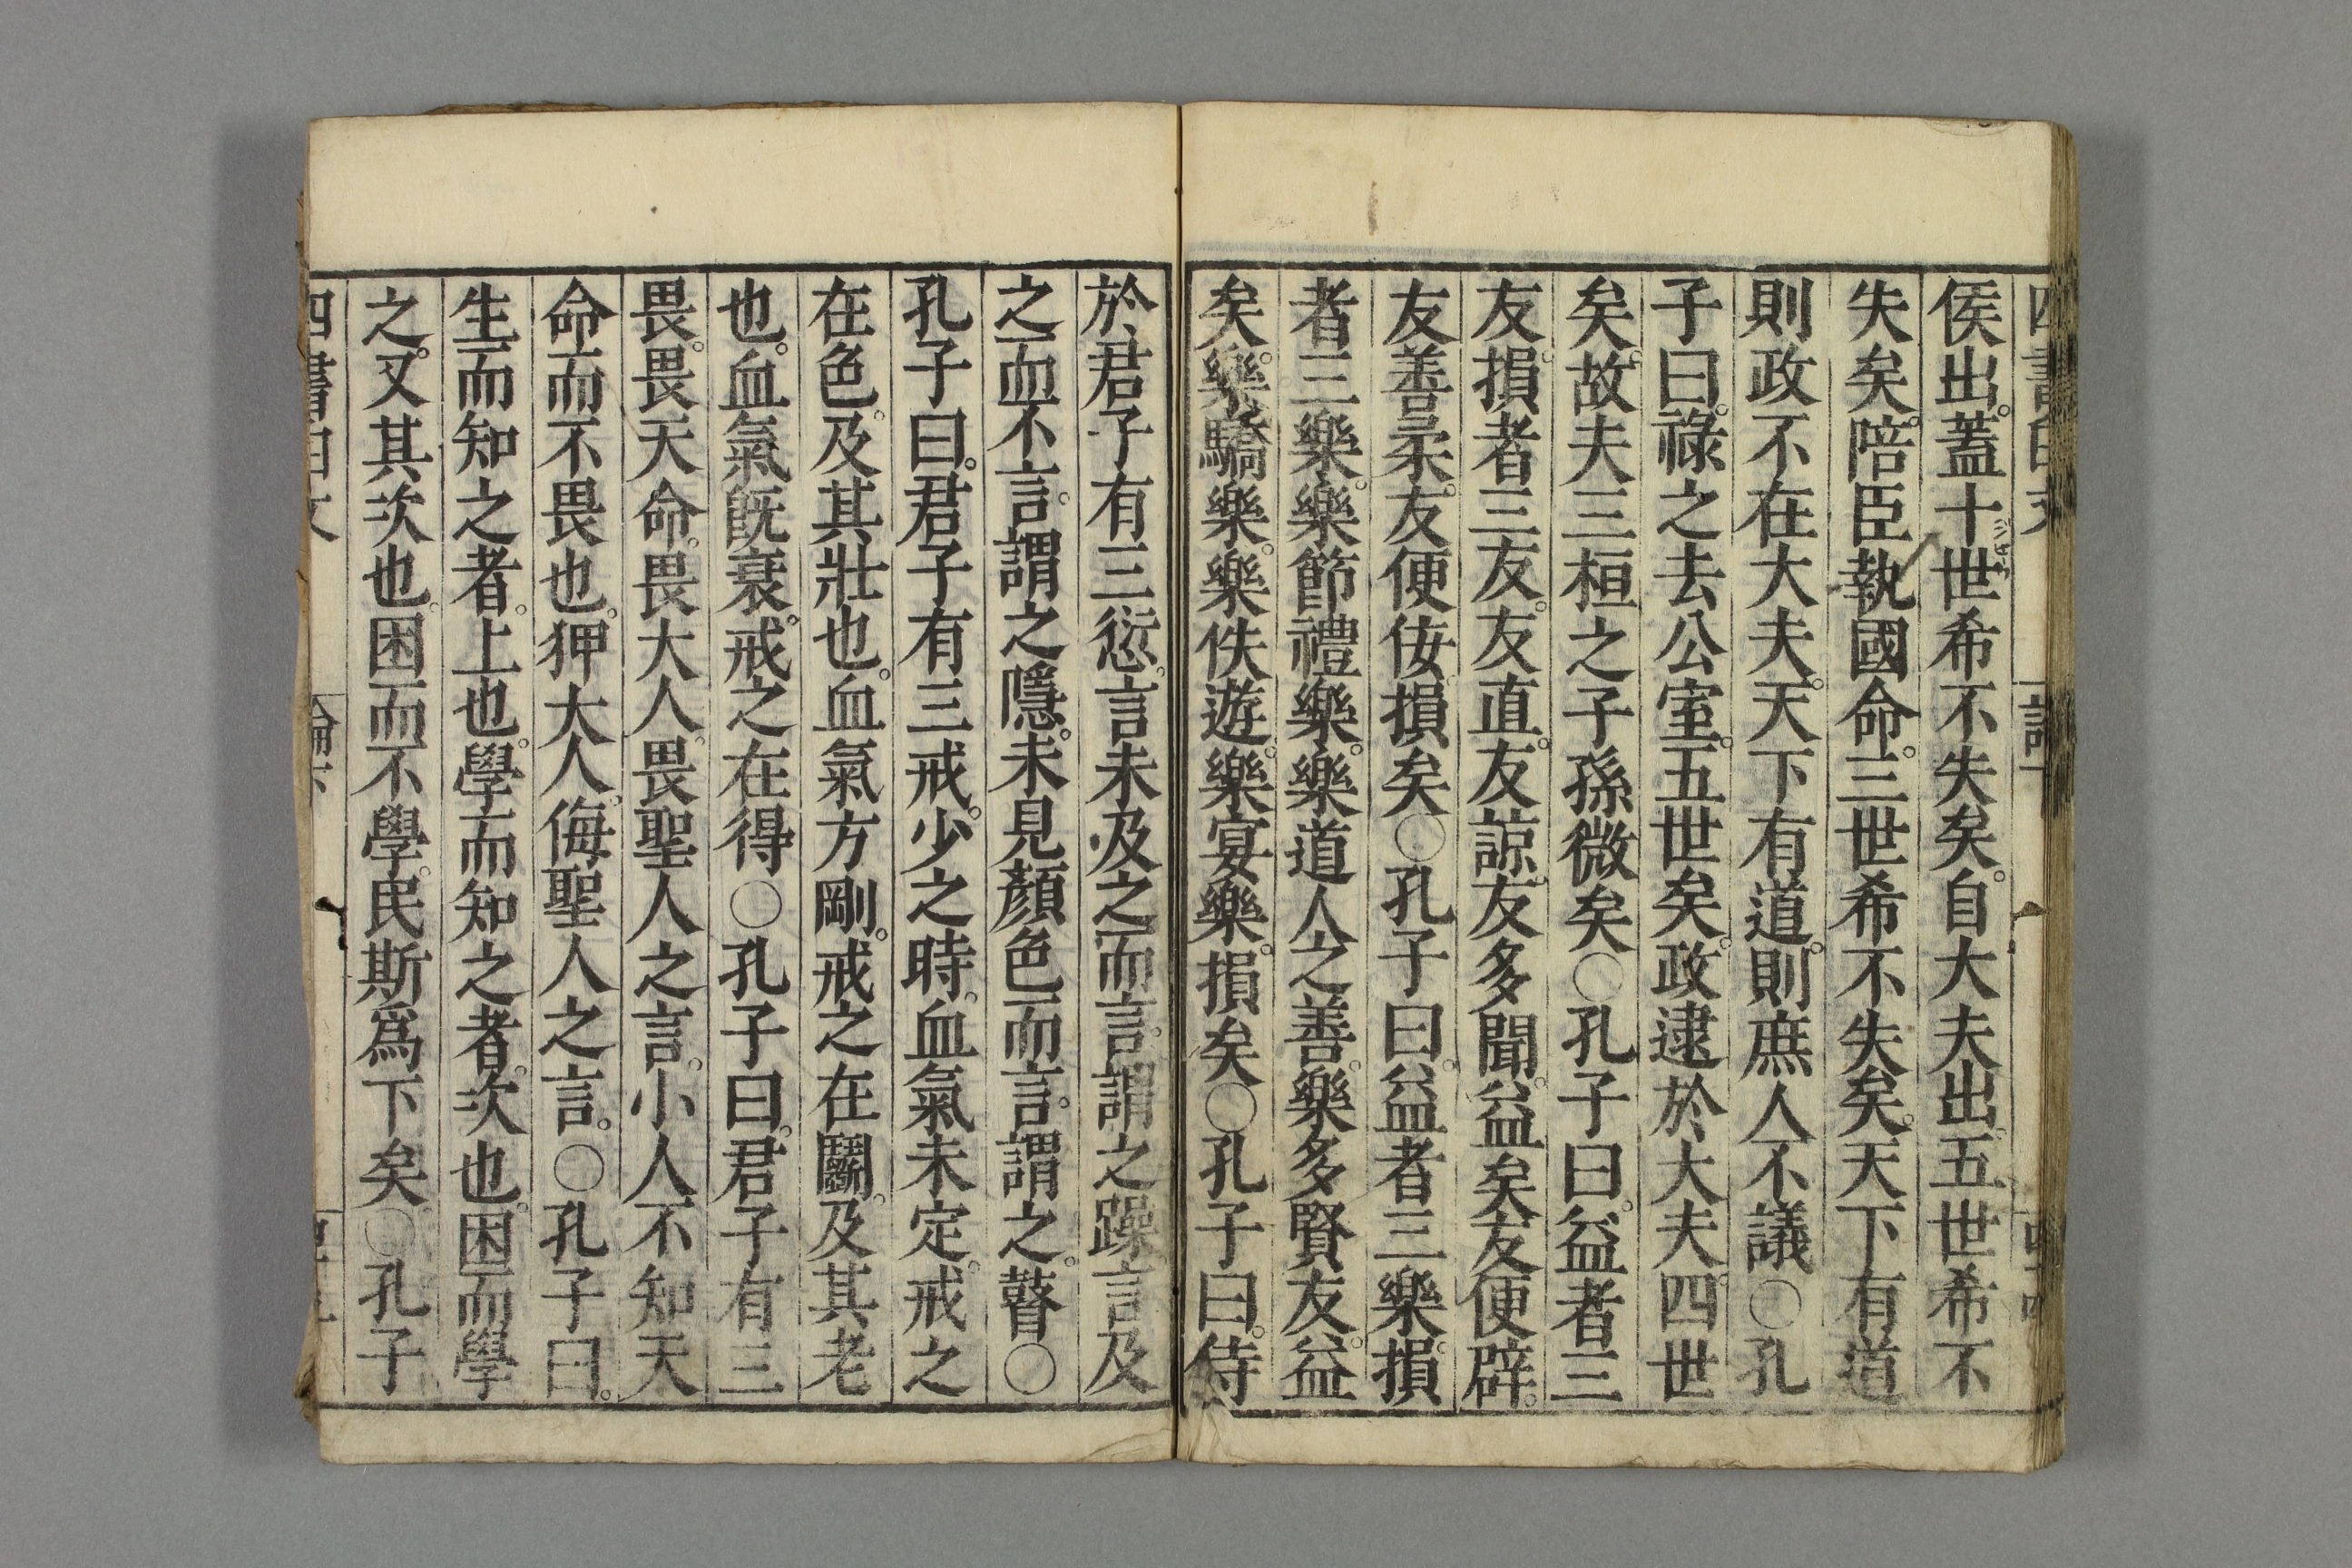 侯出。蓋十世希不失矣。自大夫出。五世希不
失矣。陪臣執國命。三世希不失矣。天下有道
則政不在大夫。天下有道。則庶人不議〇孔
子曰。祿之去公室。五世矣。政逮於大夫。四世
矣。故夫三桓之子孫微矣〇孔子曰。益者三
友。損者三友。友直。友諒。友多聞。益矣。友便辟。
友善柔。友便侫。損矣〇孔子曰。益者三樂。損
者三樂。樂節禮樂。樂道人之善。樂多賢友。益
矣。樂驕樂。樂佚遊。樂宴樂。損矣〇孔子曰。侍
於君子有三愆。言未及之而言。謂之躁。言及
之而不言。謂之隱。未見顏色而言。謂之瞽〇
孔子曰。君子有三戒。少之時。血氣未定。戒之
在色。及其壯也。血氣方剛。戒之在鬭。及其老
也。血氣既衰。戒之在得〇孔子曰。君子有三
畏。畏天命。畏大人。畏聖人之言。小人不知天
命而不畏也。狎大人。侮聖人之言。〇孔子曰。
生而知之者。上也。學而知之者。次也。困而學
之。又其次也。困而不學。民斯爲下矣〇孔子
四書白文